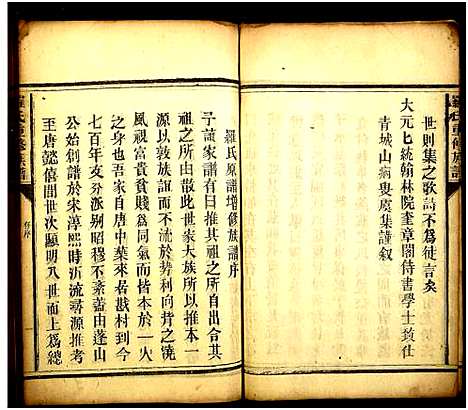 世則集之歌詩不爲徒言矣
大元七統翰林院奎章閣侍書學士致仕
青城山病叟虞集謹叙
羅氏原譜增修族譜序
予讀家譜有曰推其祖之所自出合其
祖之所由散此世家大族以推本一
源以敦族誼而不流於勢利向背之澆
風視富貴貧賤爲同氣而皆本於一人
之身也吾家自唐中葉來居戡村到今
七百年支分派别昭穆不紊蓋由蓬山
公始創譜於宋淳熙時泝流尋源推考
至唐懿僖間世次顯明八世而上爲總
羅氏重修族譜